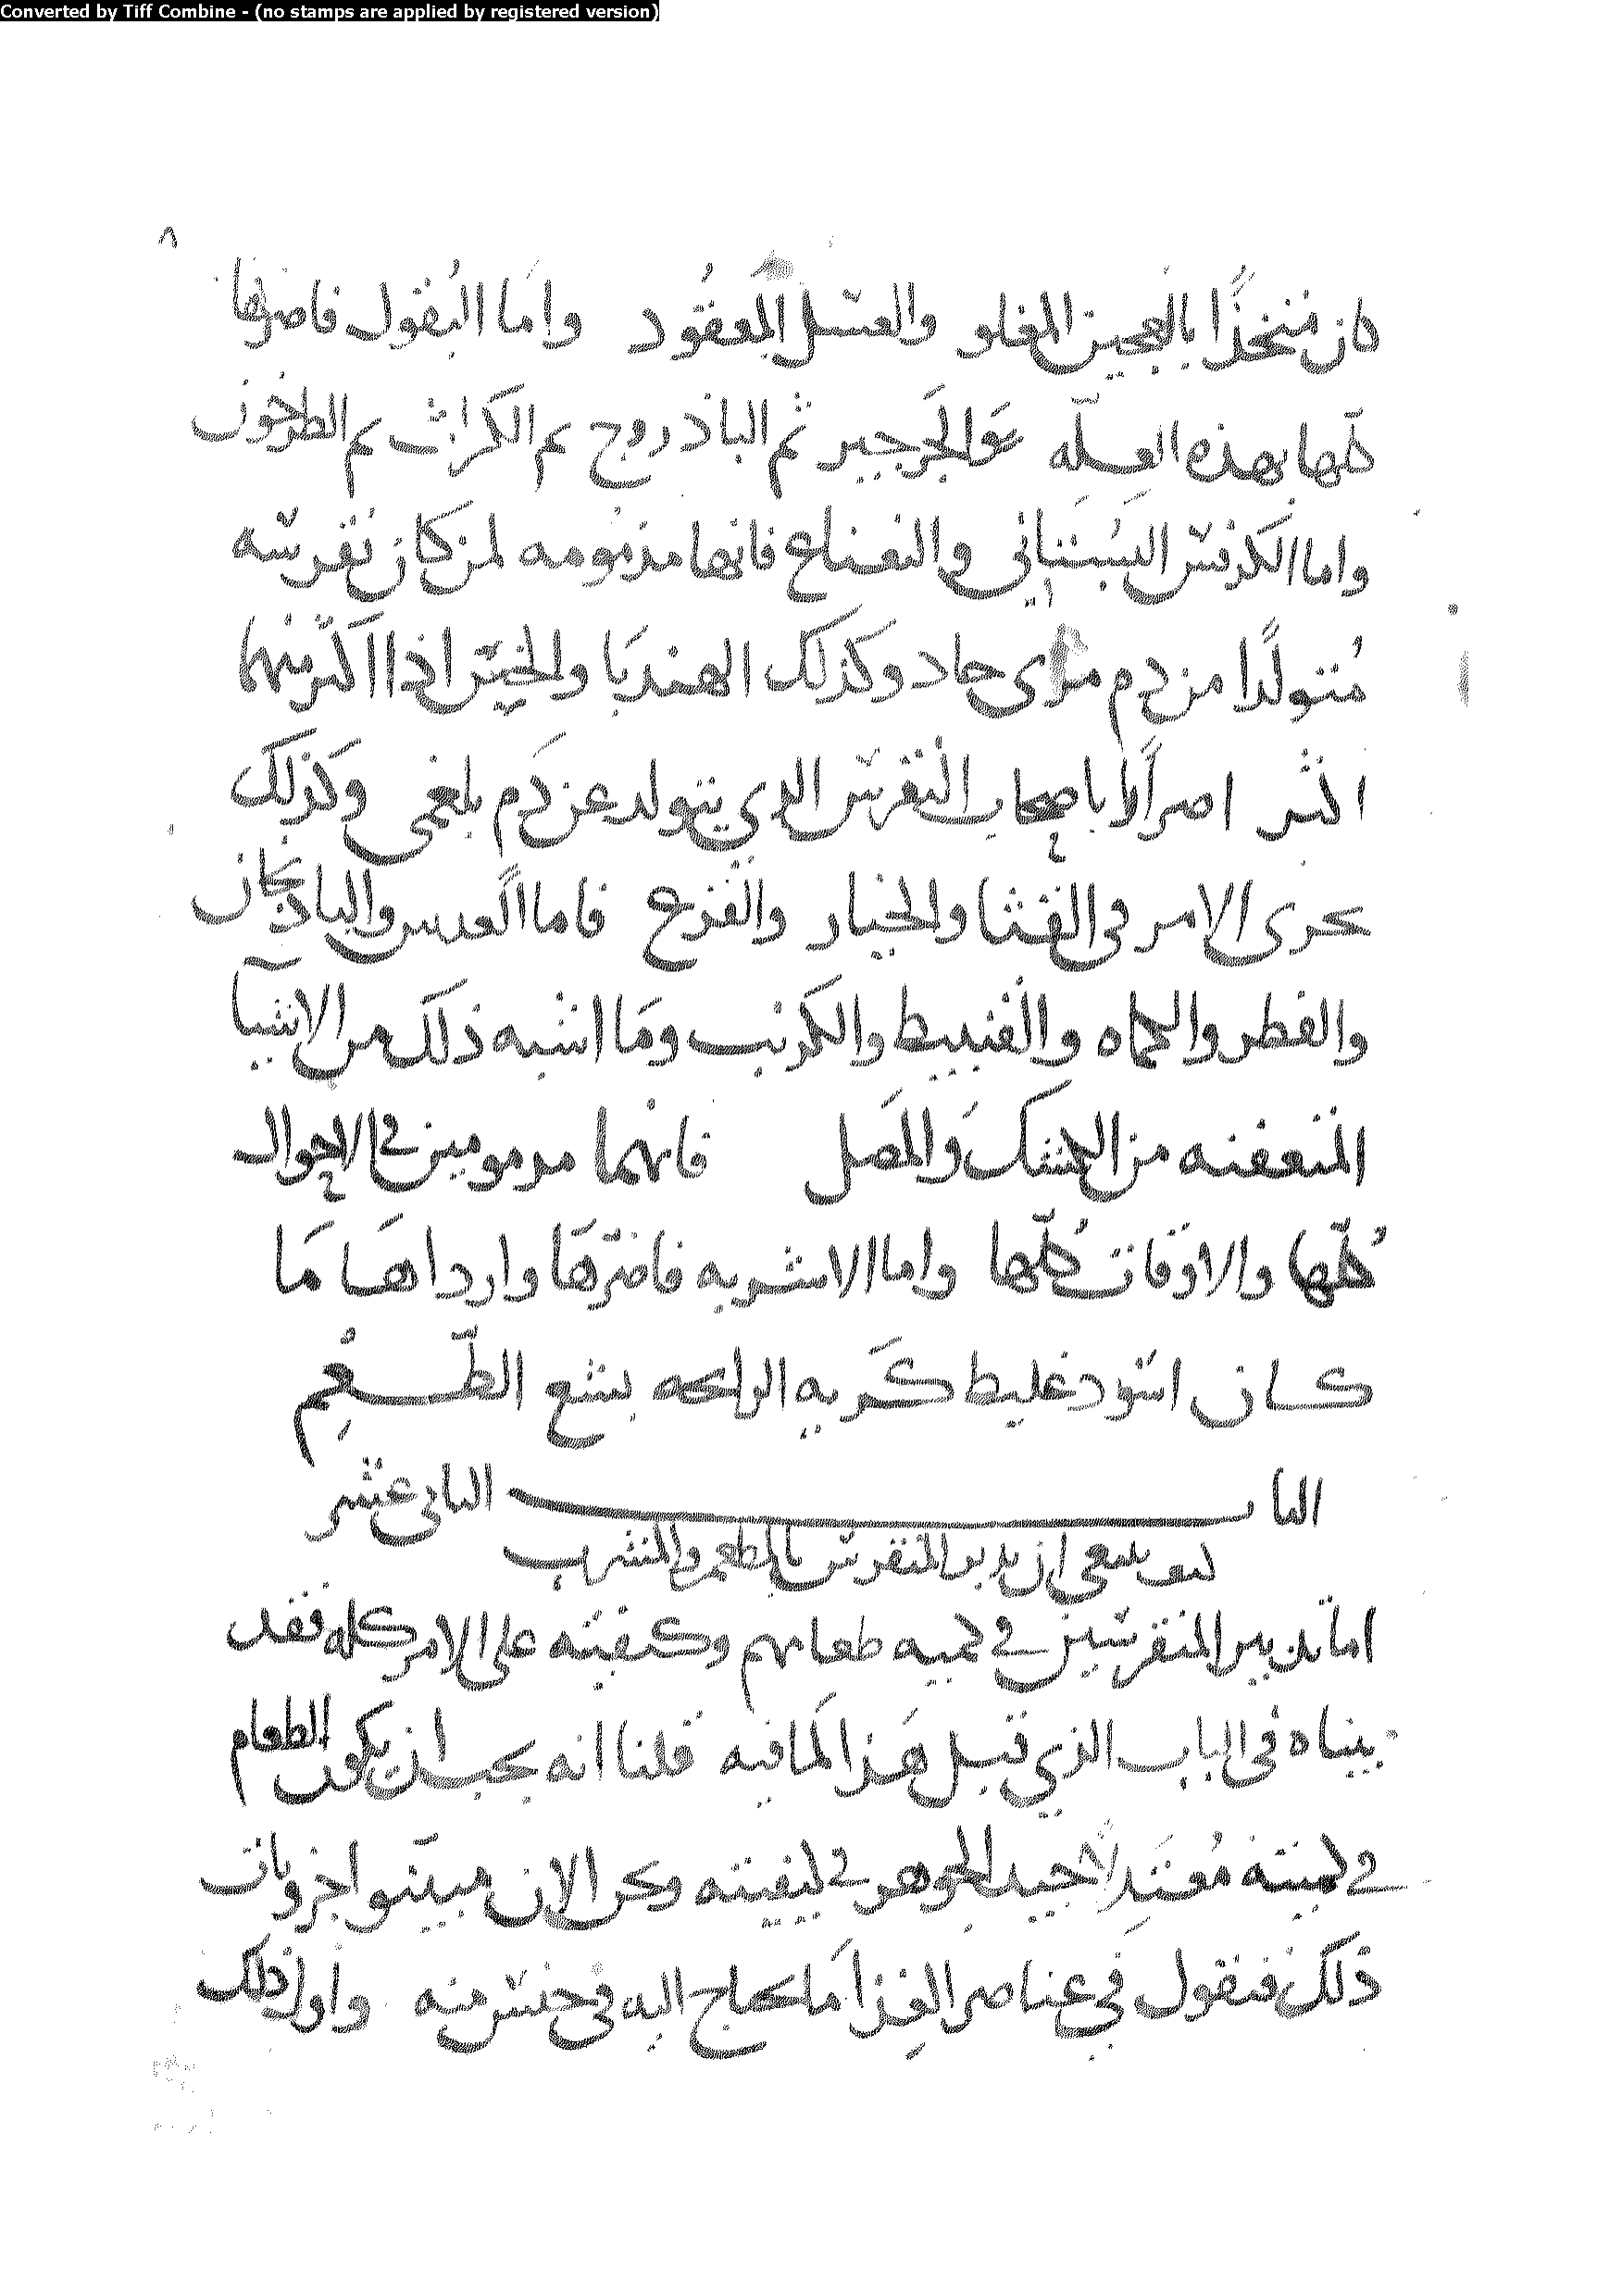 Converted by Tiff Combine - (no stamps are applied by registered version)
٨
كان متخذًا بالعجين المغلو والعسل المعقود واما البُقول فاضرها
كلها بهذه العلّه الجَرجير ثم الباذروج ثم الكراث ثم الطرخون
واما الكرفس البُستاني والنعناع فانها مذمومه لمن كان نقرسه
مُتولدًا من دم مراى حاد وكذلك الهندبا والخس اذا اكثر منهما
اكثر اصرارًا باصحاب النقرس الذي يتولد عن دم بلغمى وكذلك
يجرى الامر في القثا والخيار والقرع فاما العدس والباذنجان
والفطر والكماه والقنبيط والكرنب ومَا اشبه ذلك من الاشيآ
المتعفنه من الكشك والمصل فانهما مذمومين في الاحوال
كُلّها والاوقات كُلّها واما الاشربه فاضرّهَا وارداهَا مَا
كان اسود غليظ كريه الرايحه بشع الطّعْم
الباب الثانى عشر
كيف ينبغى ان يدبر المنقرس بالمطعم والمشرب
اما تدبير المنقرسين في كميه طعامهم وكيفيته على الامر كله فقد
بيناه في الباب الذي قبل هَذا لما فيه قلنا انه يجب ان يكون الطعام
في كميته مُعتدلاً جيد الجوهر في كيفيته ونحن الان مبيّنوا جزويات
ذلك فنقول في عناصر الغِذا مَا يحتاج اليه في جنس منه واول ذلك